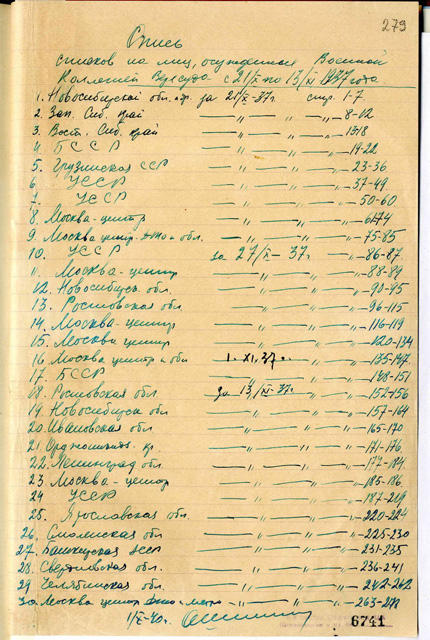 279
Опись
списков на лиц, осужденных Военной
Коллегией Верхсуда с 21/X по 13/XI 1937 года
1. Новосибирской обл. за 21/X-37г. стр. 1-7
2. Зап. Сиб. край — „ — „ — „ — 8-12
3. Вост. Сиб. край — „ — „ — „ — 13-18
4. БССР — „ — „ — „ — 19-22
5. Грузинская ССР — „ — „ — „ — 23-36
6. УССР — „ — „ — „ — 37-49
7. УССР — „ — „ — „ — 50-60
8. Москва-центр — „ — „ — „ — 61-74
9. Москва центр. и обл. — „ — „ — „ — 75-85
10. УССР за 27/X-37г. — „ — 86-87
11. Москва-центр — „ — „ — „ — 88-89
12. Новосибирск обл. — „ — „ — „ — 90-95
13. Ростовская обл. — „ — „ — „ — 96-115
14. Москва-центр — „ — „ — „ — 116-119
15. Москва центр — „ — „ — „ — 120-134
16. Москва центр и обл 1.XI.37г. — „ — 135-147
17. БССР — „ — „ — „ — 148-151
18. Ростовская обл. за 13/XI-37г. — „ — 152-156
19. Новосибирск обл — „ — „ — „ — 157-164
20. Ивановская обл — „ — „ — „ — 165-170
21. Орджоникидз. кр — „ — „ — „ — 171-176
22. Ленинград обл. — „ — „ — „ — 177-184
23. Москва-центр — „ — „ — „ — 185-186
24. УССР — „ — „ — „ — 187-219
25. Ярославская обл. — „ — „ — „ — 220-224
26. Смоленская обл — „ — „ — „ — 225-230
27. Башкирская АССР — „ — „ — „ — 231-235
28. Свердловская обл. — „ — „ — „ — 236-241
29. Челябинская обл. — „ — „ — „ — 242-262
30. Москва центр — „ — „ — 263-278
1/XI-40г.
6741